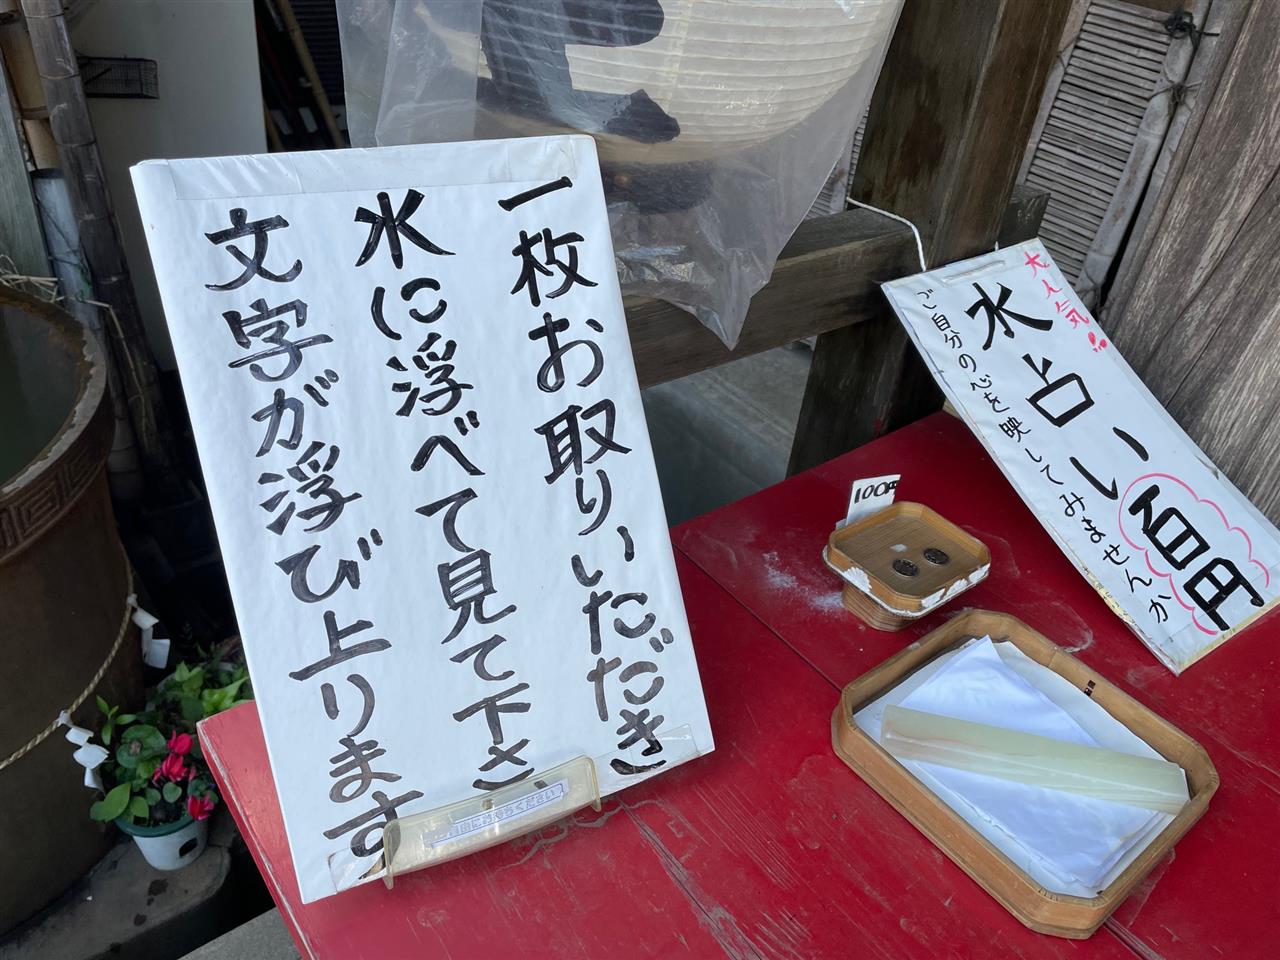 一枚お取りいただき
水に浮べて見て下さい
文字が浮び上ります
大人気!!
水占い百円
ご自分の心を映してみませんか
100円